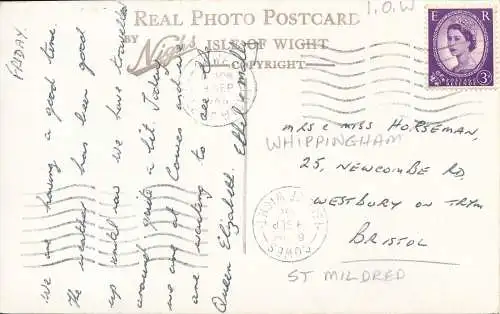 I.O.W
REAL PHOTO POSTCARD
BY Nigh's ISLE OF WIGHT
COPYRIGHT
E R
3D
FRIDAY.
We are having a good time.
The weather has been good
up until now we have travelled
around quite a bit. Today
we are at Cowes and
are waiting to see the
Queen Elizabeth.
MRS & MISS HORSEMAN,
WHIPPINGHAM
25, NEWCOMBE RD,
WESTBURY ON TRYM
BRISTOL
COWES
ISLE OF WIGHT
ST MILDRED